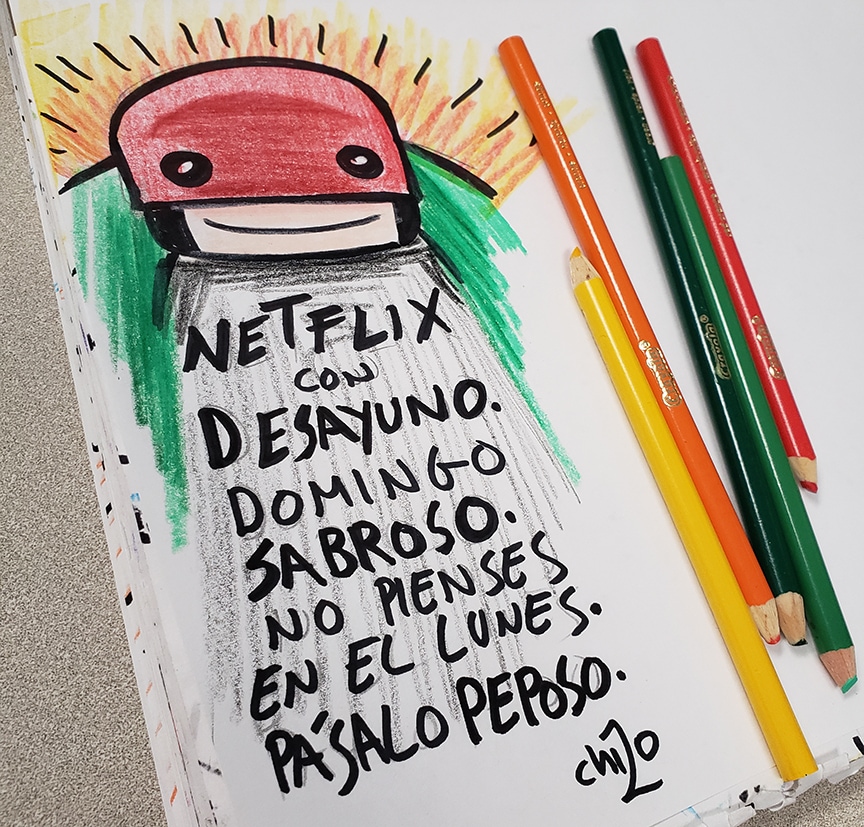 NETFLIX
CON
DESAYUNO.
DOMINGO
SABROSO.
NO PIENSES
EN EL LUNES.
PÁSALO PEPOSO.
chizo
Crayola
Crayola